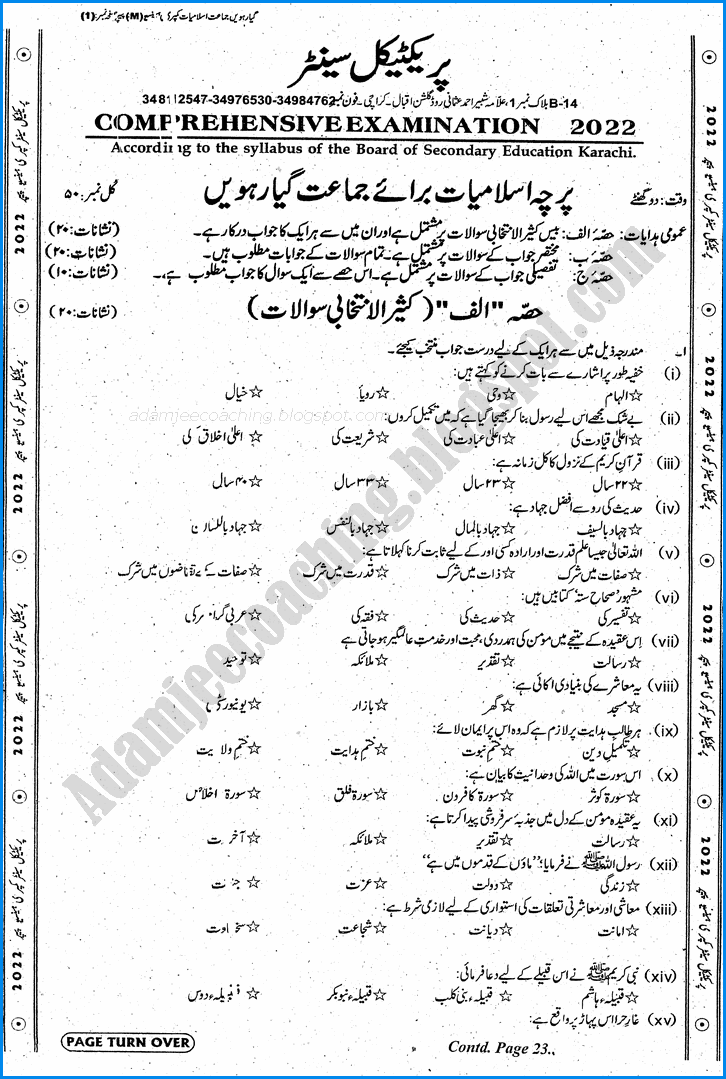 گیارہویں جماعت اسلامیات
پریکٹیکل سینٹر
B-14 بلاک نمبر 1، علامہ شبیر احمد عثمانی روڈ گلشن اقبال - کراچی - فون نمبر 34984762-34976530-34812547
COMPREHENSIVE EXAMINATION 2022
According to the syllabus of the Board of Secondary Education Karachi.
وقت: دو گھنٹے پرچہ اسلامیات برائے جماعت گیارہویں کل نمبر: ۵۰
عمومی ہدایات: حصّہ الف: بیس کثیر الانتخابی سوالات پر مشتمل ہے اور ان میں سے ہر ایک کا جواب درکار ہے۔ (نشانات: ۲۰)
حصّہ ب: مختصر جواب کے سوالات پر مشتمل ہے۔ تمام سوالات کے جوابات مطلوب ہیں۔ (نشانات: ۲۰)
حصّہ ج: تفصیلی جواب کے سوالات پر مشتمل ہے۔ اس حصے سے ایک سوال کا جواب مطلوب ہے۔ (نشانات: ۱۰)
حصّہ "الف" (کثیر الانتخابی سوالات) (نشانات: ۲۰)
۱۔ مندرجہ ذیل میں سے ہر ایک کے لیے درست جواب منتخب کیجئے۔
(i) خفیہ طور پر اشارے سے بات کرنے کو کہتے ہیں:
☆ الہام ☆ وحی ☆ رویا ☆ خیال
adamjeecoaching.blogspot.com
(ii) بے شک مجھے اس لیے رسول بنا کر بھیجا گیا ہے کہ میں تکمیل کروں:
☆ اعلیٰ قیادت کی ☆ اعلیٰ عبادت کی ☆ شریعت کی ☆ اعلیٰ اخلاق کی
(iii) قرآن کریم کے نزول کا کل زمانہ ہے:
☆ ۲۲ سال ☆ ۲۳ سال ☆ ۳۳ سال ☆ ۴۰ سال
(iv) حدیث کی رو سے افضل جہاد ہے:
☆ جہاد بالسیف ☆ جہاد بالمال ☆ جہاد بالنفس ☆ جہاد باللسان
(v) اللہ تعالیٰ جیسا علم قدرت اور ارادہ کسی اور کے لیے ثابت کرنا کہلاتا ہے:
☆ صفات میں شرک ☆ ذات میں شرک ☆ قدرت میں شرک ☆ صفات کے تقاضوں میں شرک
(vi) مشہور صحاح ستہ کتابیں ہیں:
☆ تفسیر کی ☆ حدیث کی ☆ فقہ کی ☆ عربی گرامر کی
(vii) اس عقیدہ کے نتیجے میں مومن کی ہمدردی، محبت اور خدمت عالمگیر ہو جاتی ہے
☆ رسالت ☆ تقدیر ☆ ملائکہ ☆ توحید
(viii) یہ معاشرے کی بنیادی اکائی ہے:
☆ مسجد ☆ گھر ☆ بازار ☆ یونیورسٹی
(ix) ہر طالب ہدایت پر لازم ہے کہ وہ اس پر ایمان لائے:
☆ تکمیل دین ☆ ختم نبوت ☆ ختم ہدایت ☆ ختم ولایت
(x) اس سورت میں اللہ کی وحدانیت کا بیان ہے:
☆ سورۃ کوثر ☆ سورۃ کافرون ☆ سورۃ فلق ☆ سورۃ اخلاص
(xi) یہ عقیدہ مومن کے دل میں جذبہ سرفروشی پیدا کرتا ہے:
☆ رسالت ☆ تقدیر ☆ ملائکہ ☆ آخرت
(xii) رسول اللہ ﷺ نے فرمایا: "ماؤں کے قدموں میں ہے"
☆ زندگی ☆ دولت ☆ عزت ☆ جنت
(xiii) معاشی اور معاشرتی تعلقات کی استواری کے لیے لازمی شرط ہے:
☆ امانت ☆ دیانت ☆ شجاعت ☆ سخاوت
(xiv) نبی کریم ﷺ نے اس قبیلے کے لیے دعا فرمائی:
☆ قبیلہ ہاشم ☆ قبیلہ بنی کلب ☆ قبیلہ بنو بکر ☆ قبیلہ دوس
(xv) غار حرا اس پہاڑ پر واقع ہے:
PAGE TURN OVER
Contd. Page 23..
Adamjeecoaching.blogspot.com